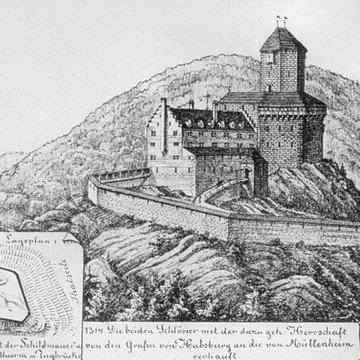 Lageplan 1:
1314 Die beiden Schlösser mit der dazu geh. Herrschaft
von den Grafen von Habsburg an die von Müllenheim
verkauft
der Schildmauer
thurm u Zugbrücke